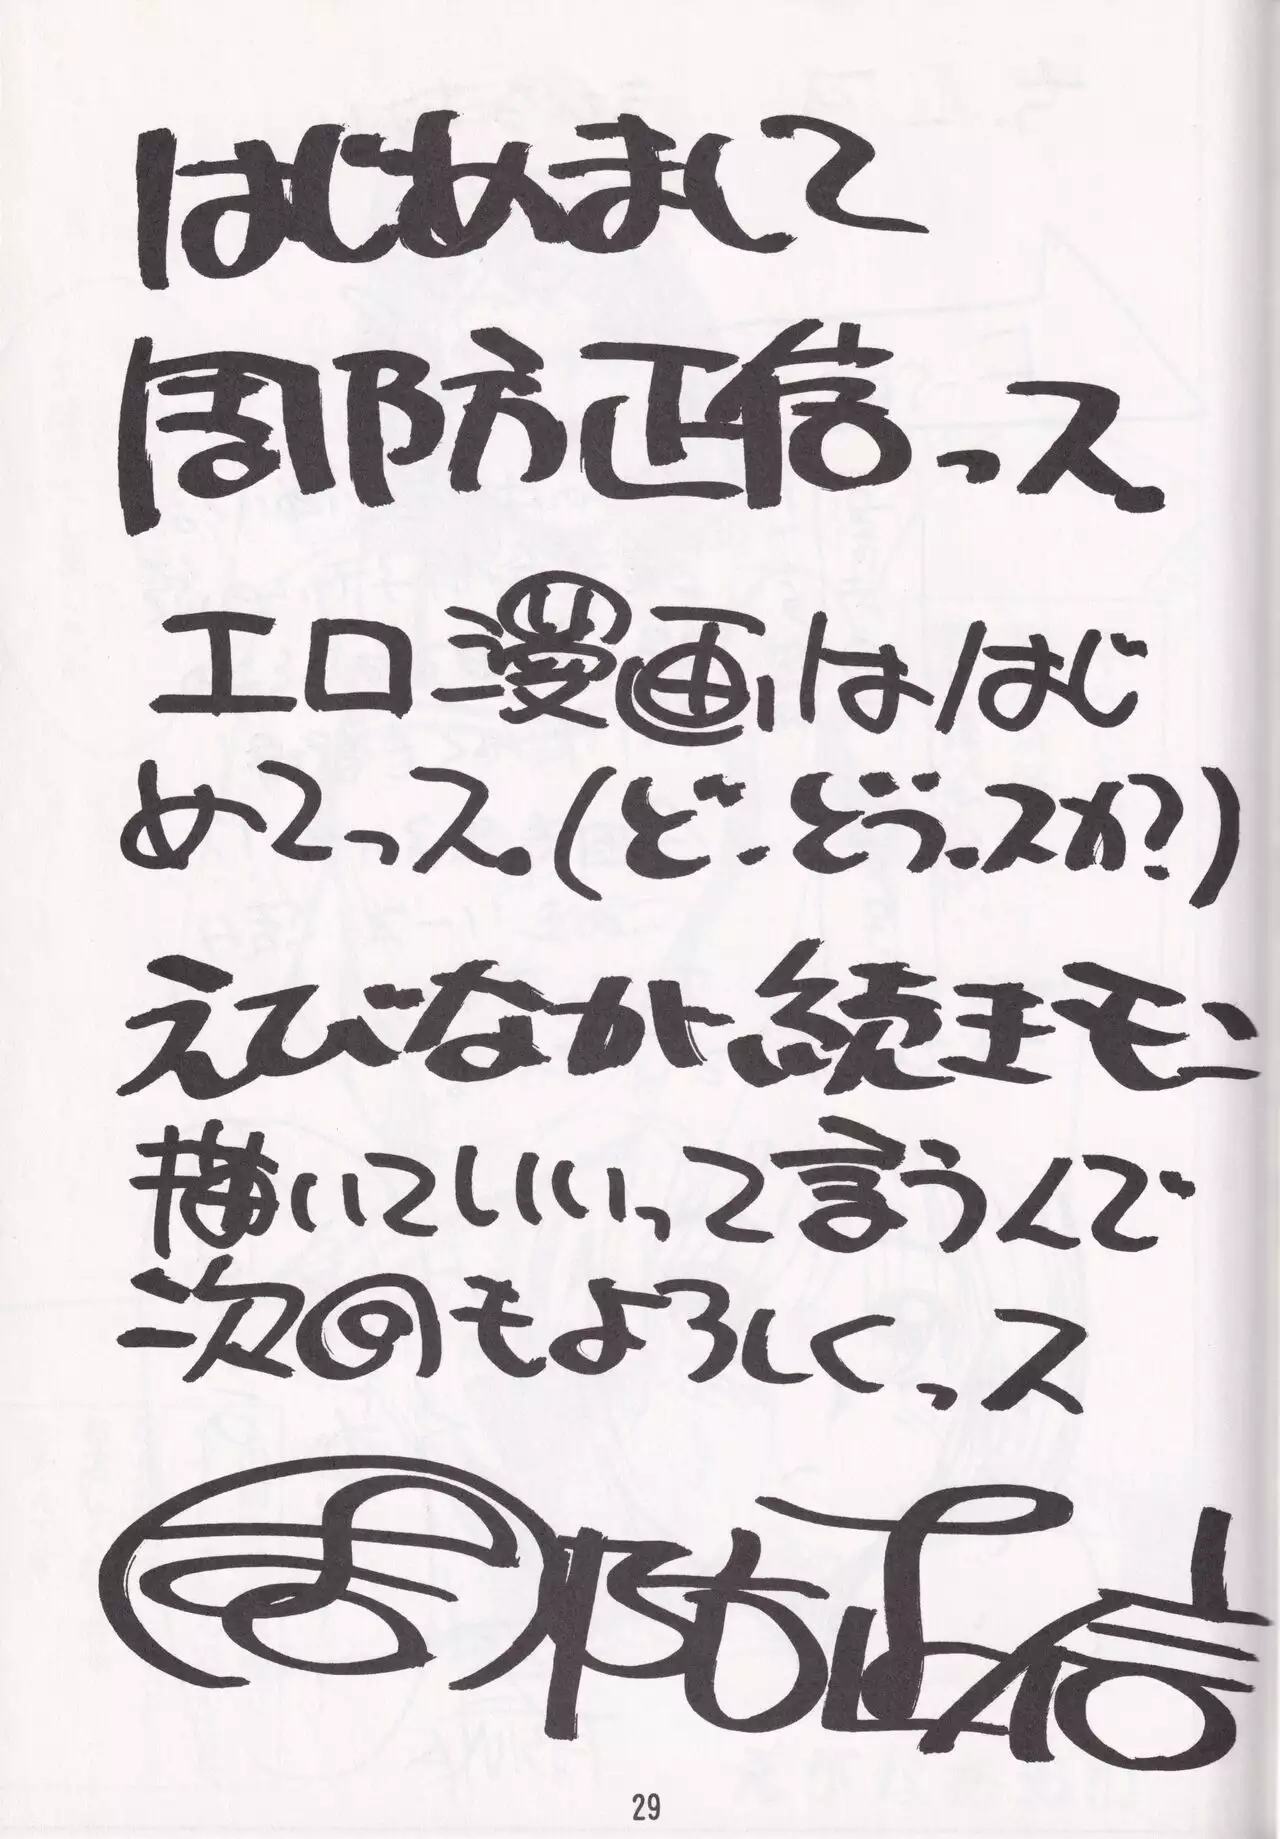 はじめまして
周防正信っス.
エロ漫画ははじ
めてっス.(ど・どうっスか?)
えびなが続キモン
描いていいって言うんで
次回もよろしくっス
周防正信
29